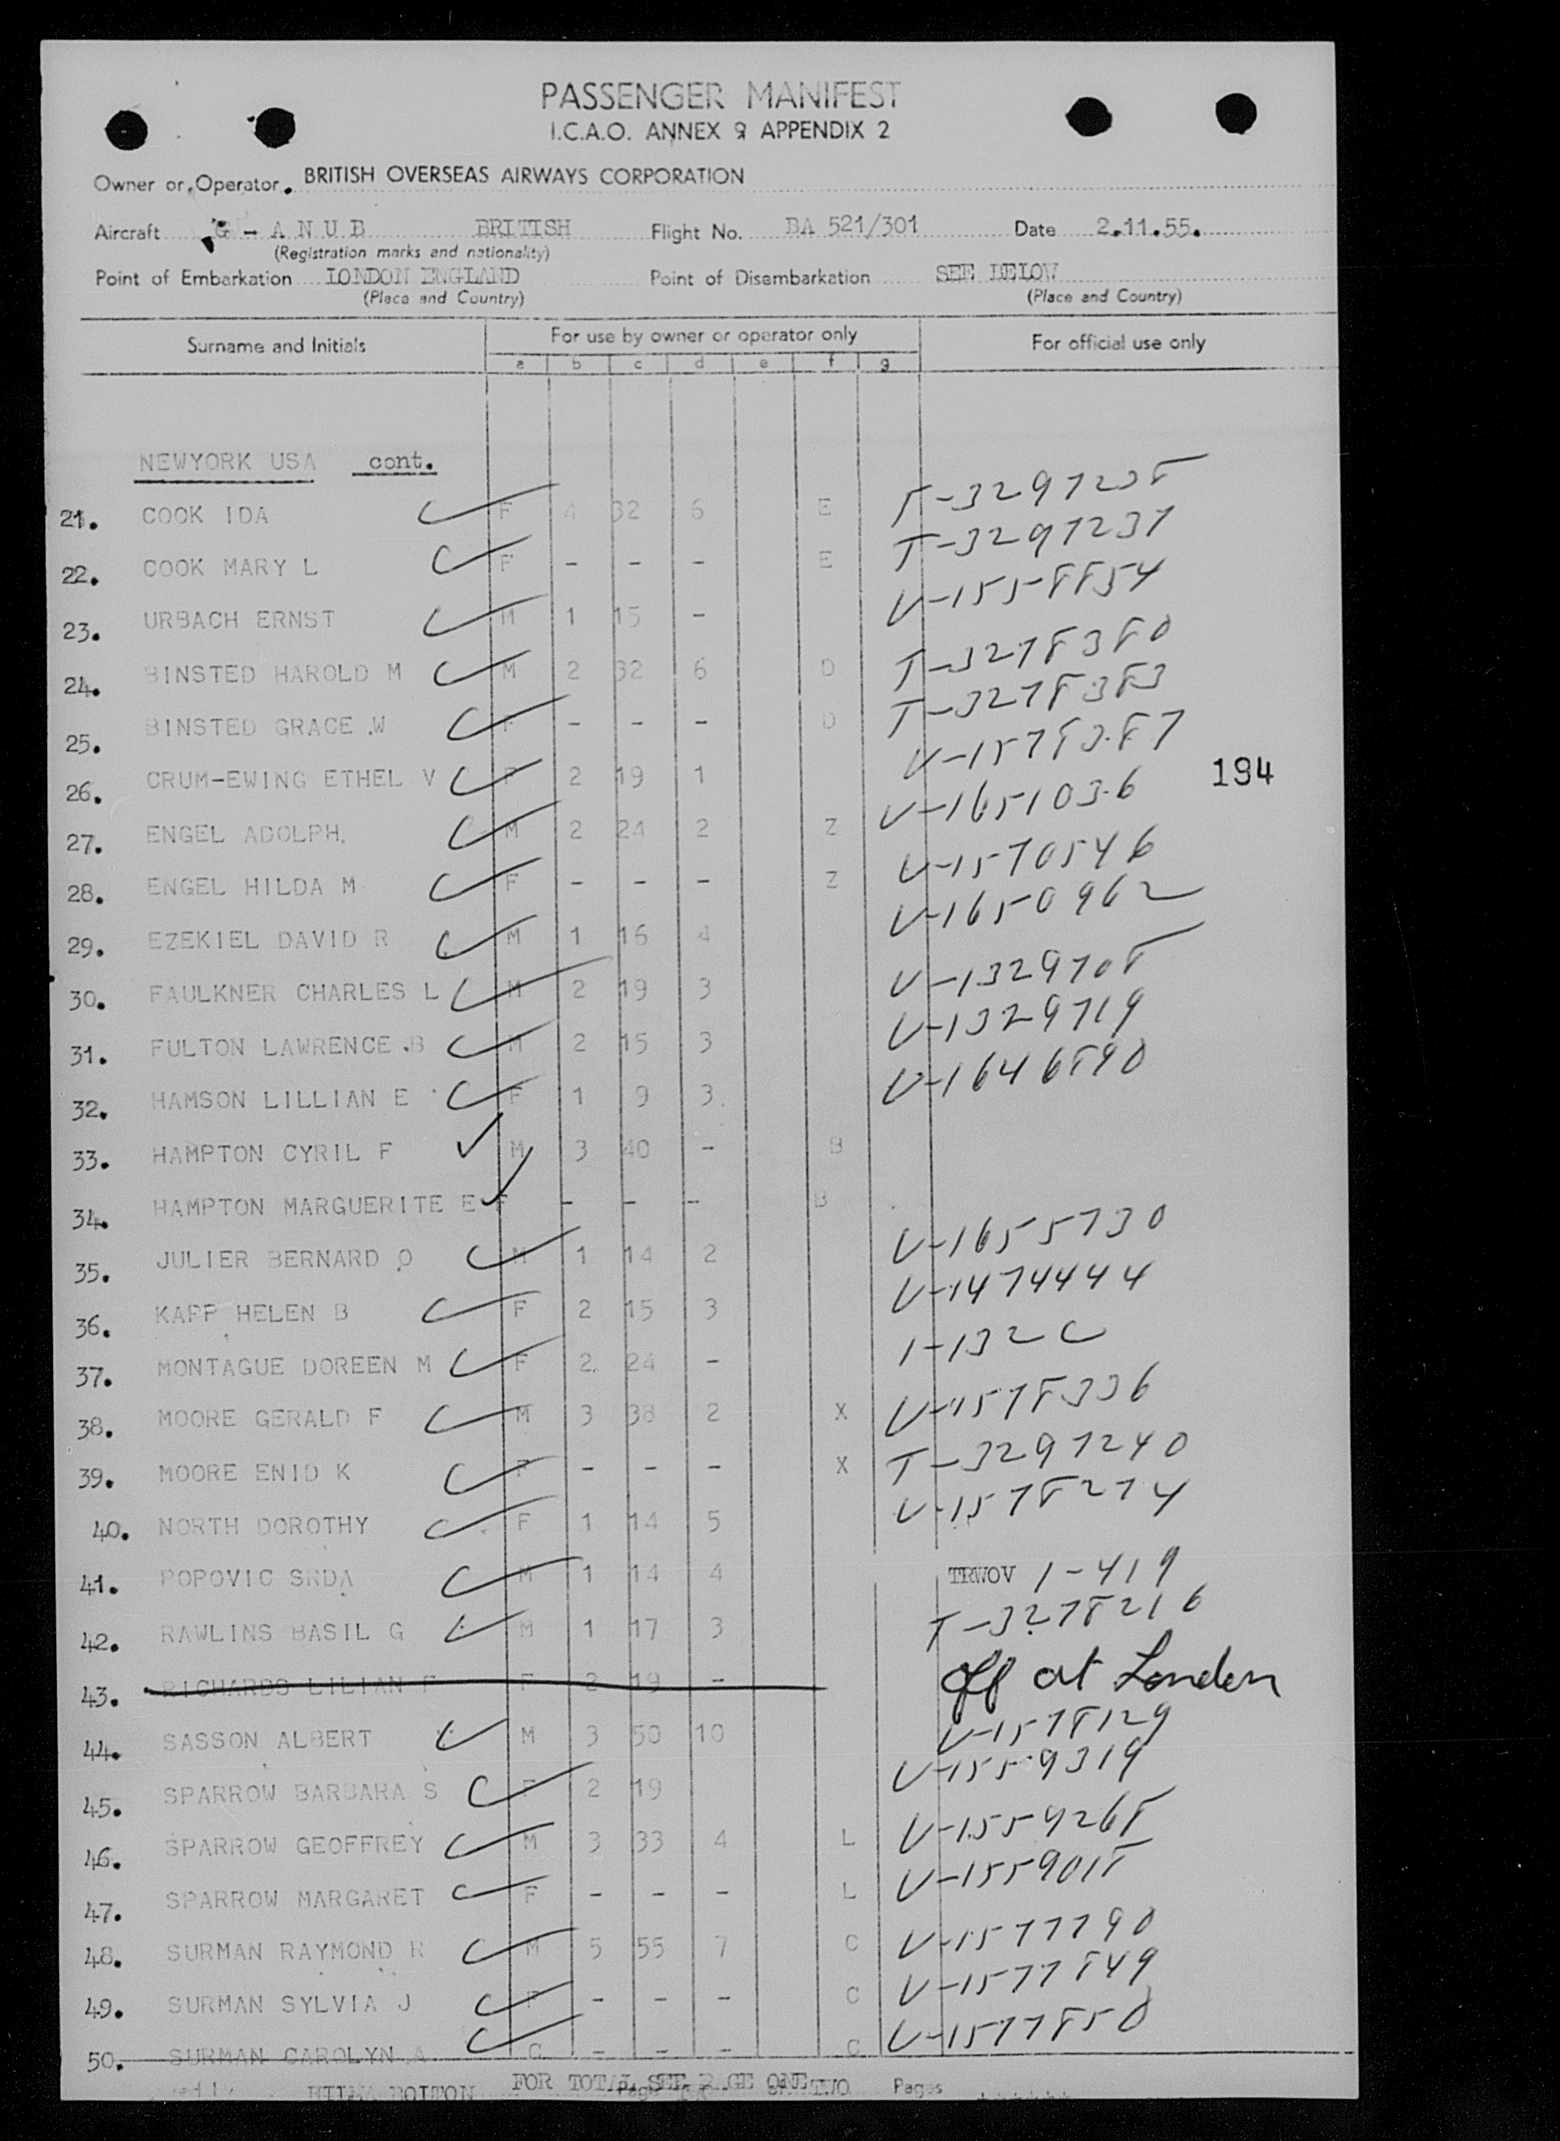 PASSENGER MANIFEST
I.C.A.O. ANNEX 9 APPENDIX 2
Owner or Operator. BRITISH OVERSEAS AIRWAYS CORPORATION
Aircraft G - A N U B BRITISH Flight No. BA 521/301 Date 2.11.55.
(Registration marks and nationality)
Point of Embarkation LONDON ENGLAND Point of Disembarkation SEE BELOW
(Place and Country) (Place and Country)
Surname and Initials For use by owner or operator only For official use only
a b c d e f g
NEWYORK USA cont.
21. COOK IDA F 4 32 6 E T-3297238
22. COOK MARY L F - - - E T-3297237
23. URBACH ERNST M 1 15 - V-1558854
24. BINSTED HAROLD M M 2 32 6 D T-3278380
25. BINSTED GRACE .W F - - - D T-3278383
26. CRUM-EWING ETHEL V F 2 19 1 V-1578387
194
27. ENGEL ADOLPH. M 2 24 2 Z V-1651036
28. ENGEL HILDA M F - - - Z V-1570546
29. EZEKIEL DAVID R M 1 16 4 V-1650962
30. FAULKNER CHARLES L M 2 19 3 V-1329708
31. FULTON LAWRENCE .B M 2 15 3 V-1329719
32. HAMSON LILLIAN E F 1 9 3 V-1646890
33. HAMPTON CYRIL F M 3 40 - B
34. HAMPTON MARGUERITE E F - - - B
35. JULIER BERNARD O M 1 14 2 V-1655730
36. KAPP HELEN B F 2 15 3 V-1474444
37. MONTAGUE DOREEN M F 2 24 - 1-132 C
38. MOORE GERALD F M 3 38 2 X V-1578336
39. MOORE ENID K F - - - X T-3297240
40. NORTH DOROTHY F 1 14 5 V-1578274
41. POPOVIC SRDA M 1 14 4 TRWOV 1-419
42. RAWLINS BASIL G M 1 17 3 T-3278216
43. RICHARDS LILIAN F F 2 19 - off at London
44. SASSON ALBERT M 3 50 10 V-1578129
45. SPARROW BARBARA S F 2 19 V-1559319
46. SPARROW GEOFFREY M 3 33 4 L V-1559268
47. SPARROW MARGARET F - - - L V-1559018
48. SURMAN RAYMOND R M 5 55 7 C V-1577790
49. SURMAN SYLVIA J F - - - C V-1577849
50. SURMAN CAROLYN A C - - - C V-1577850
BOLTON FOR TOTAL SEE PAGE ONE TWO Pages